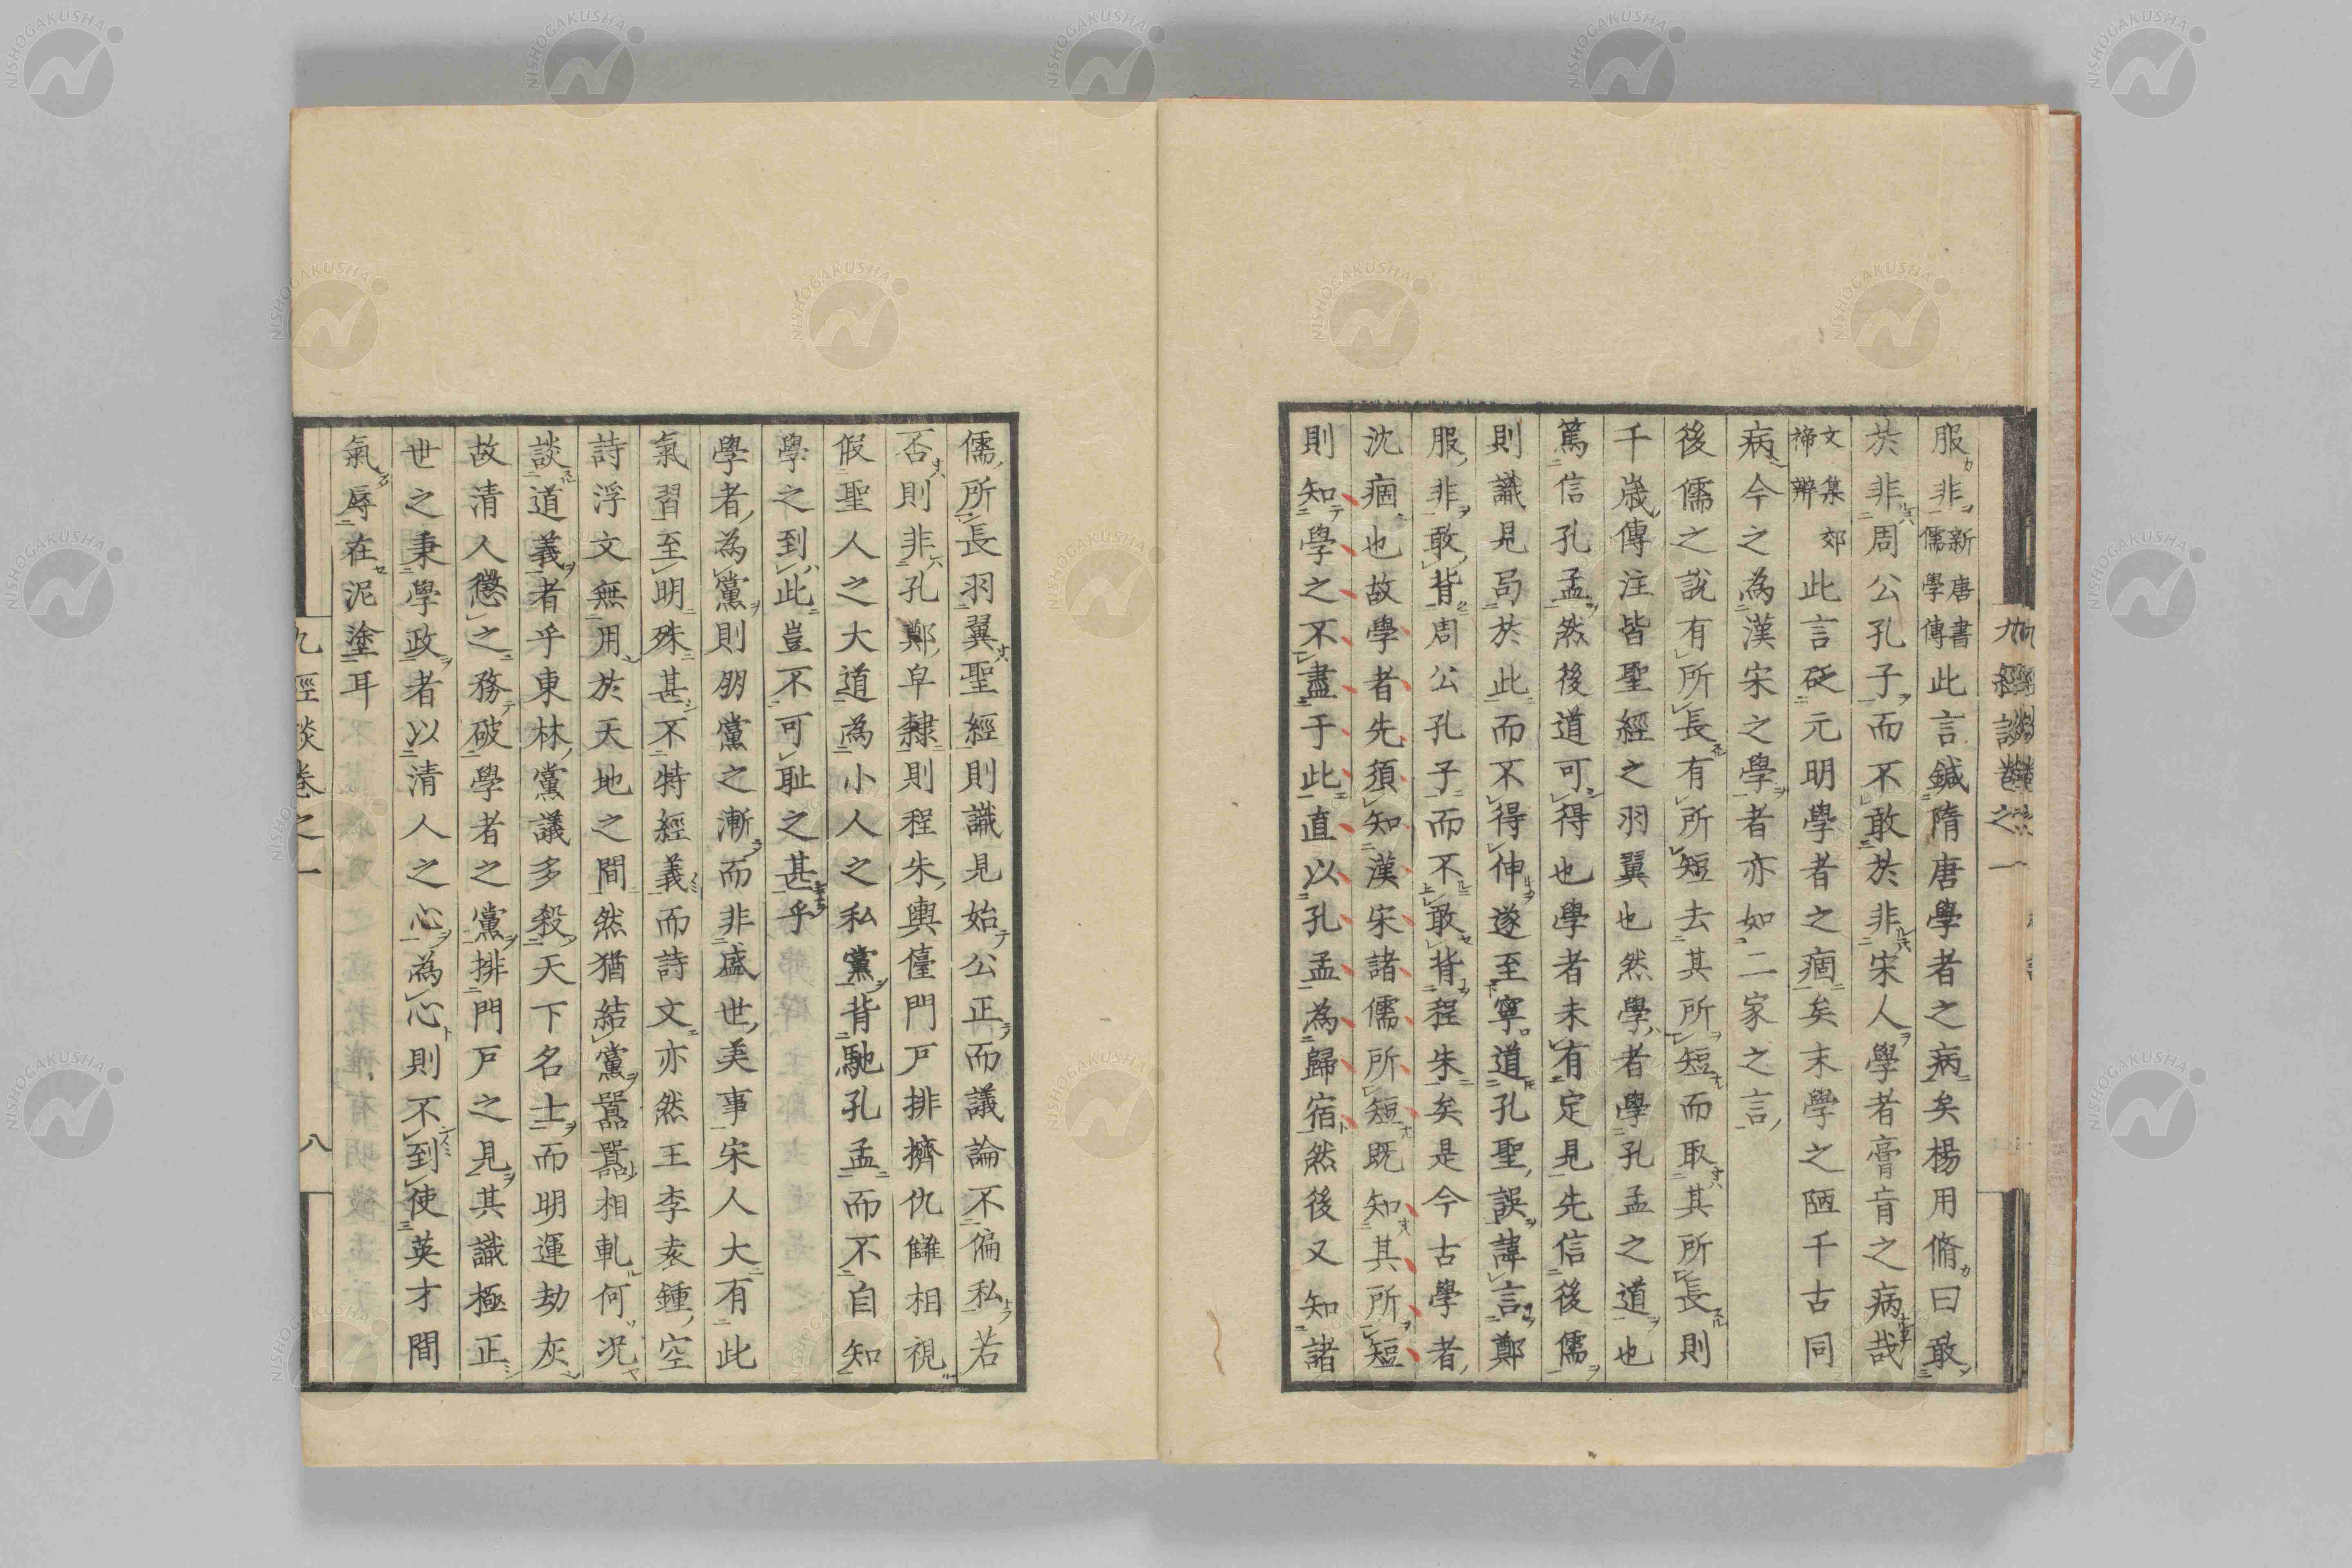 九經談卷之一
服非新唐書儒學傳此言鍼隋唐學者之病矣楊用脩曰敢
於非周公孔子而不敢於非宋人學者膏肓之病哉
文集郊禘辨此言砭元明學者之痼矣末學之陋千古同
病今之為漢宋之學者亦如二家之言
後儒之說有所長有所短去其所短而取其所長則
千歲傳注皆聖經之羽翼也然學者學孔孟之道也
篤信孔孟然後道可得也學者未有定見先信後儒
則識見局於此而不得伸遂至寧道孔聖誤諱言鄭
服非敢背周公孔子而不敢背程朱矣是今古學者
沈痼也故學者先須知漢宋諸儒所短既知其所短
則知學之不盡于此直以孔孟為歸宿然後又知諸
儒所長羽翼聖經則識見始公正而議論不偏私若
否則非孔鄭皁隸則程朱輿儓門戶排擠仇雠相視
假聖人之大道為小人之私黨背馳孔孟而不自知
學之到此豈不可耻之甚乎
學者為黨則朋黨之漸而非盛世美事宋人大有此
氣習至明殊甚不特經義而詩文亦然王李袁鍾空
詩浮文無用於天地之間然猶結黨囂囂相軋何況
談道義者乎東林黨議多殺天下名士而明運劫灰
故清人懲之務破學者之黨排門戶之見其識極正
世之秉學政者以清人之心為心則不到使英才間
氣辱在泥塗耳
九經談卷之一
八
NISHOGAKUSHA